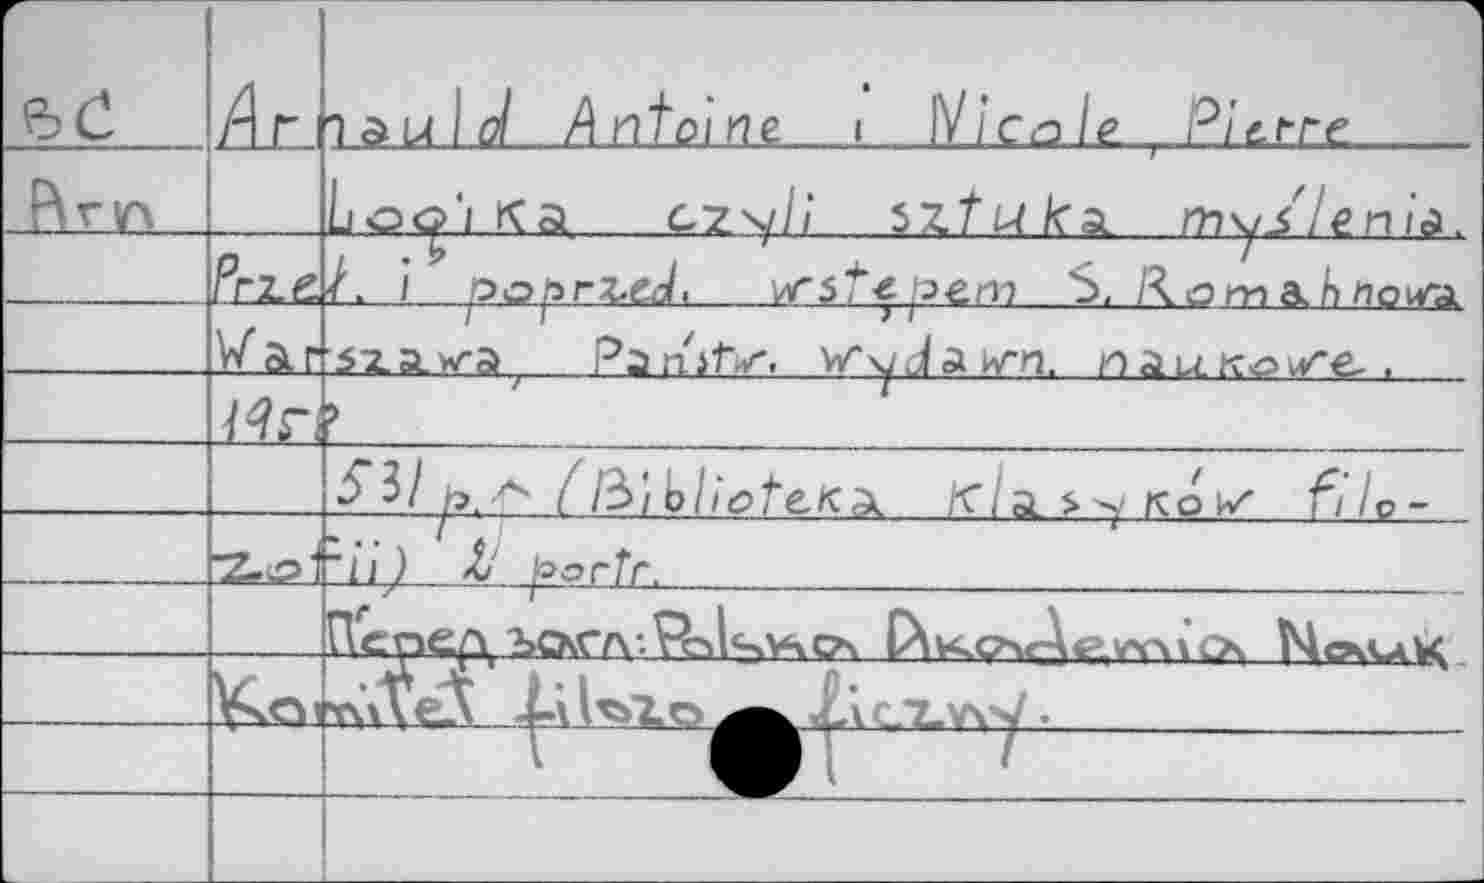 ВС Arnauld Antoine i Nicole, Pierre
Arn Logika czyli sztuka myślenia.
Przeł. i poprzed. wstępem S. Romahnowa
Warszawa, Państw. wydawn. naukowe.,
1958
531 p. (Biblioteka klasyków filo-
zofii) portr.
Перед загл: Polska Akademia Nauk
Komitet filozoficzny.